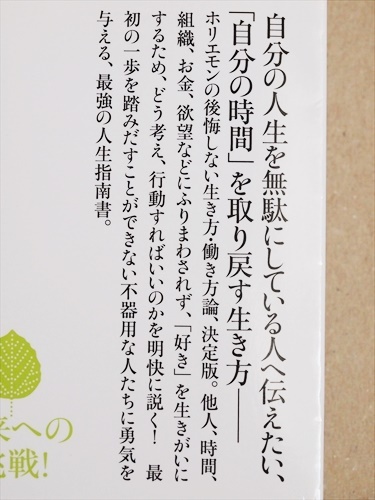 自分の人生を無駄にしている人へ伝えたい、
「自分の時間」を取り戻す生き方――
ホリエモンの後悔しない生き方・働き方論、決定版。他人、時間、
組織、お金、欲望などにふりまわされず、「好き」を生きがいに
するため、どう考え、行動すればいいのかを明快に説く！　最
初の一歩を踏みだすことができない不器用な人たちに勇気を
与える、最強の人生指南書。
来への
挑戦!